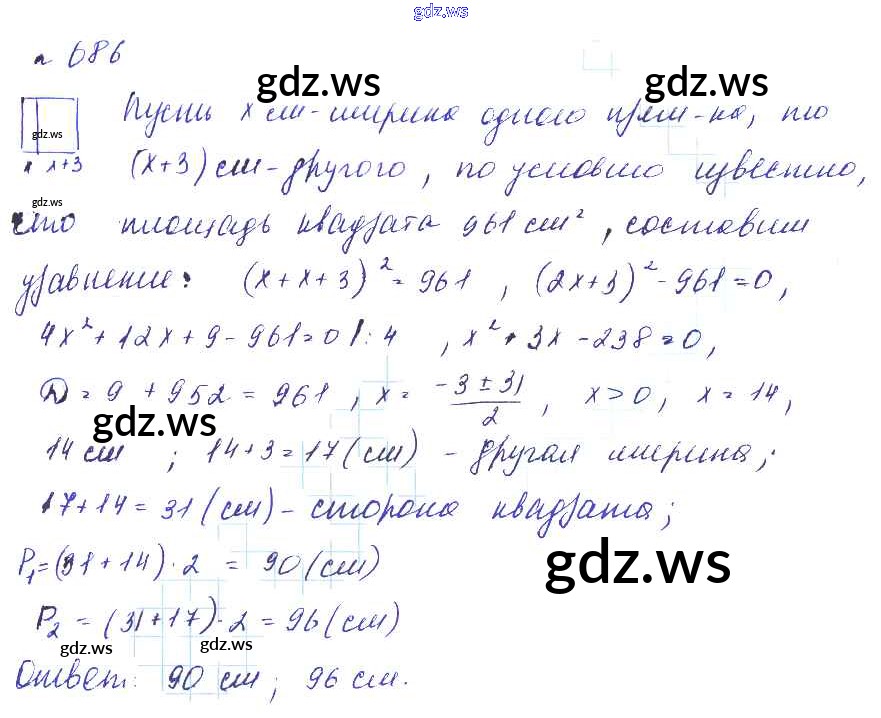 gdz.ws
n 686
gdz.ws
Пусть x см - ширина одного прям-ка, то
gdz.ws
x x+3 (x+3) см - другого, по условию известно,
gdz.ws
что площадь квадрата 961 см², составим
уравнение: (x+x+3)² = 961, (2x+3)² - 961 = 0,
4x² + 12x + 9 - 961 = 0 |: 4, x² + 3x - 238 = 0,
D = 9 + 952 = 961, x = (-3 ± 31)/2, x > 0, x = 14,
gdz.ws
14 см; 14+3 = 17 (см) - другая ширина;
17+14 = 31 (см) - сторона квадрата;
P₁ = (31+14)·2 = 90 (см)
gdz.ws
P₂ = (31+17)·2 = 96 (см)
gdz.ws gdz.ws
Ответ: 90 см; 96 см.